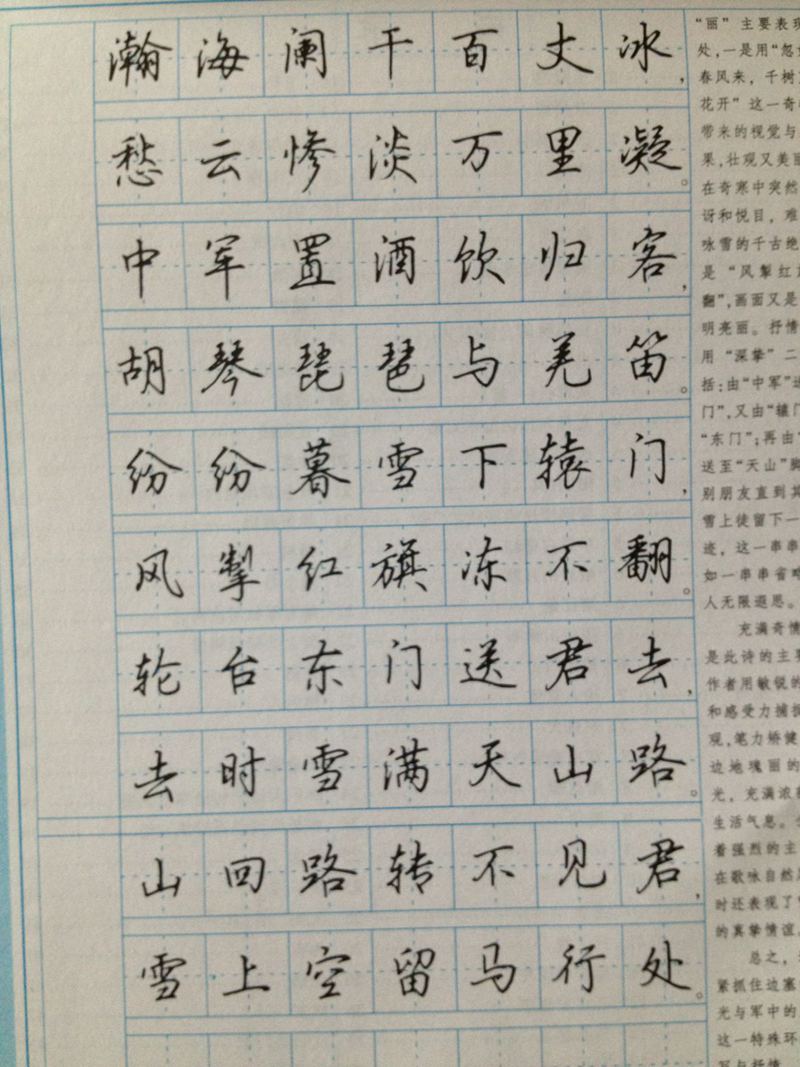 瀚海阑干百丈冰，
愁云惨淡万里凝。
中军置酒饮归客，
胡琴琵琶与羌笛。
纷纷暮雪下辕门，
风掣红旗冻不翻。
轮台东门送君去，
去时雪满天山路。
山回路转不见君，
雪上空留马行处。
“丽”主要表现
处，一是用“忽
春风来，千树
花开”这一奇
带来的视觉与
果，壮观又美丽
在奇寒中突然
讶和悦目，难
咏雪的千古绝
是“风掣红
翻”，画面又是
明亮丽。抒情
用“深挚”二
括：由“中军”
门”，又由“辕门
“东门”；再由
送至“天山”脚
别朋友直到其
雪上徒留下一
迹，这一串串
如一串串省略
人无限遐思。
充满奇情
是此诗的主要
作者用敏锐的
和感受力捕捉
观，笔力矫健
边地瑰丽的
光，充满浓
生活气息。
着强烈的主
在歌咏自然
时还表现了
的真挚情谊。
总之，
紧抓住边塞
光与军中的
这一特殊环
写与抒情